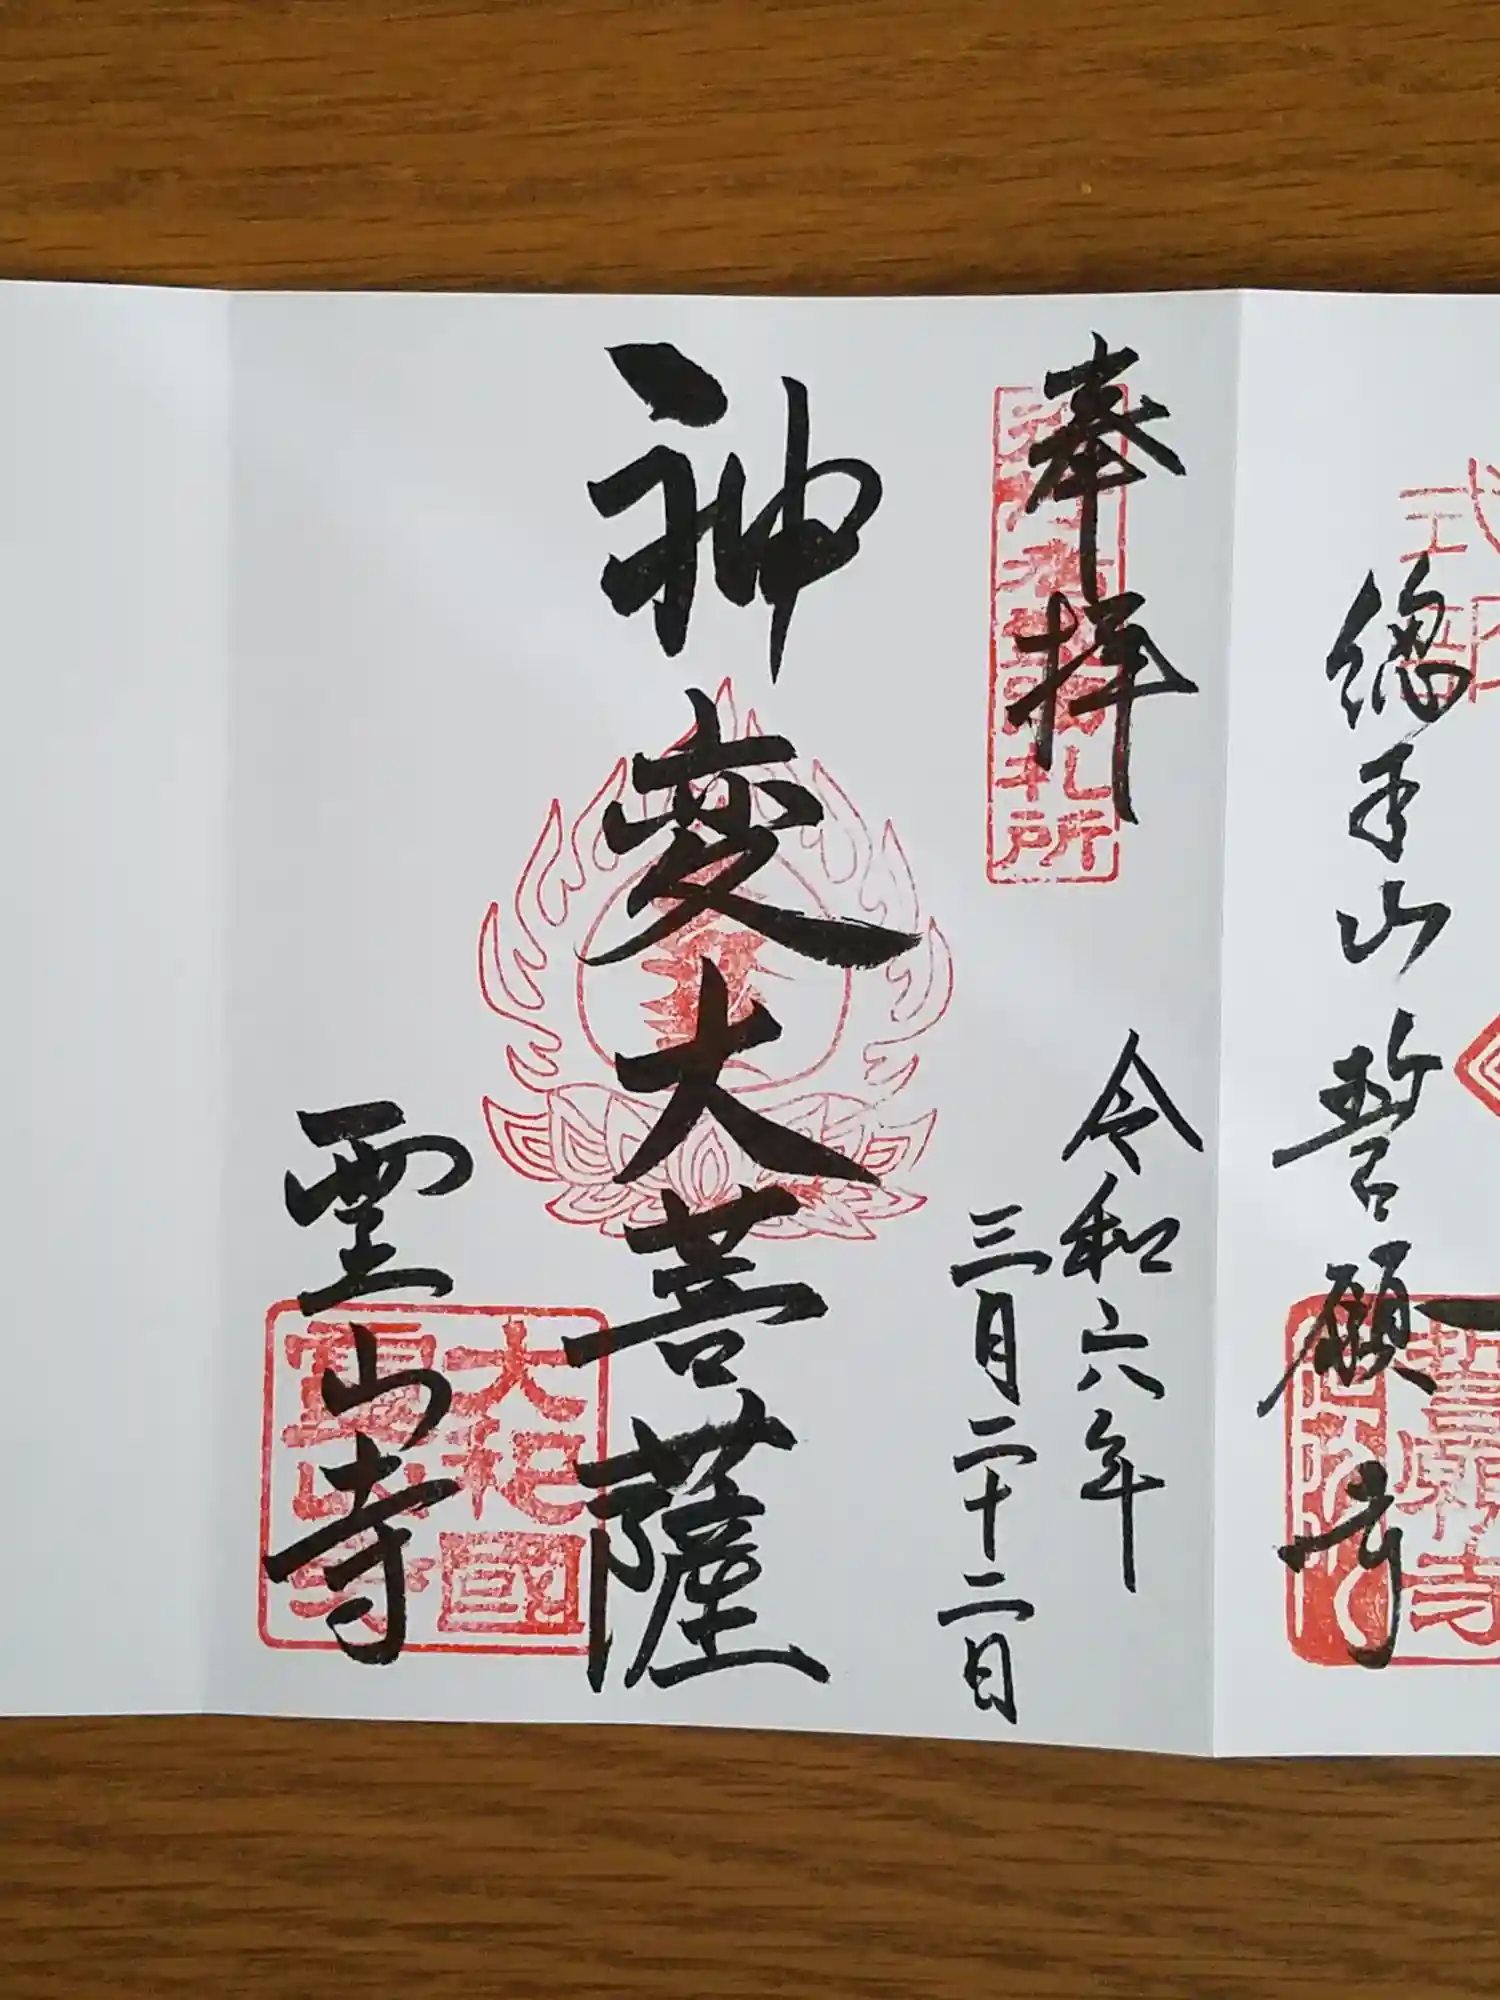 式
總本山誓願寺
誓願寺
奉拝
札所
令和六年
三月二十二日
神変大菩薩
大和國
霊山寺
霊山寺